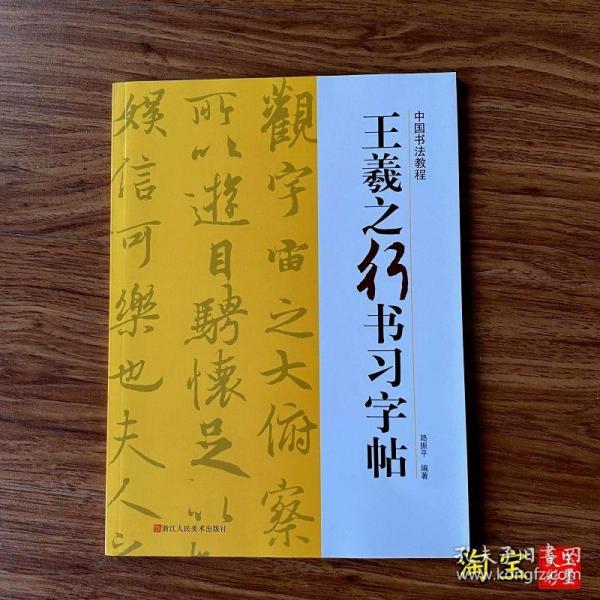 中国书法教程
王羲之行书习字帖
路振平 编著
觀宇宙之大俯察
所以遊目騁懷足以
娛信可樂也夫人之
浙江人民美术出版社
孔夫子旧书网
www.kongfz.com